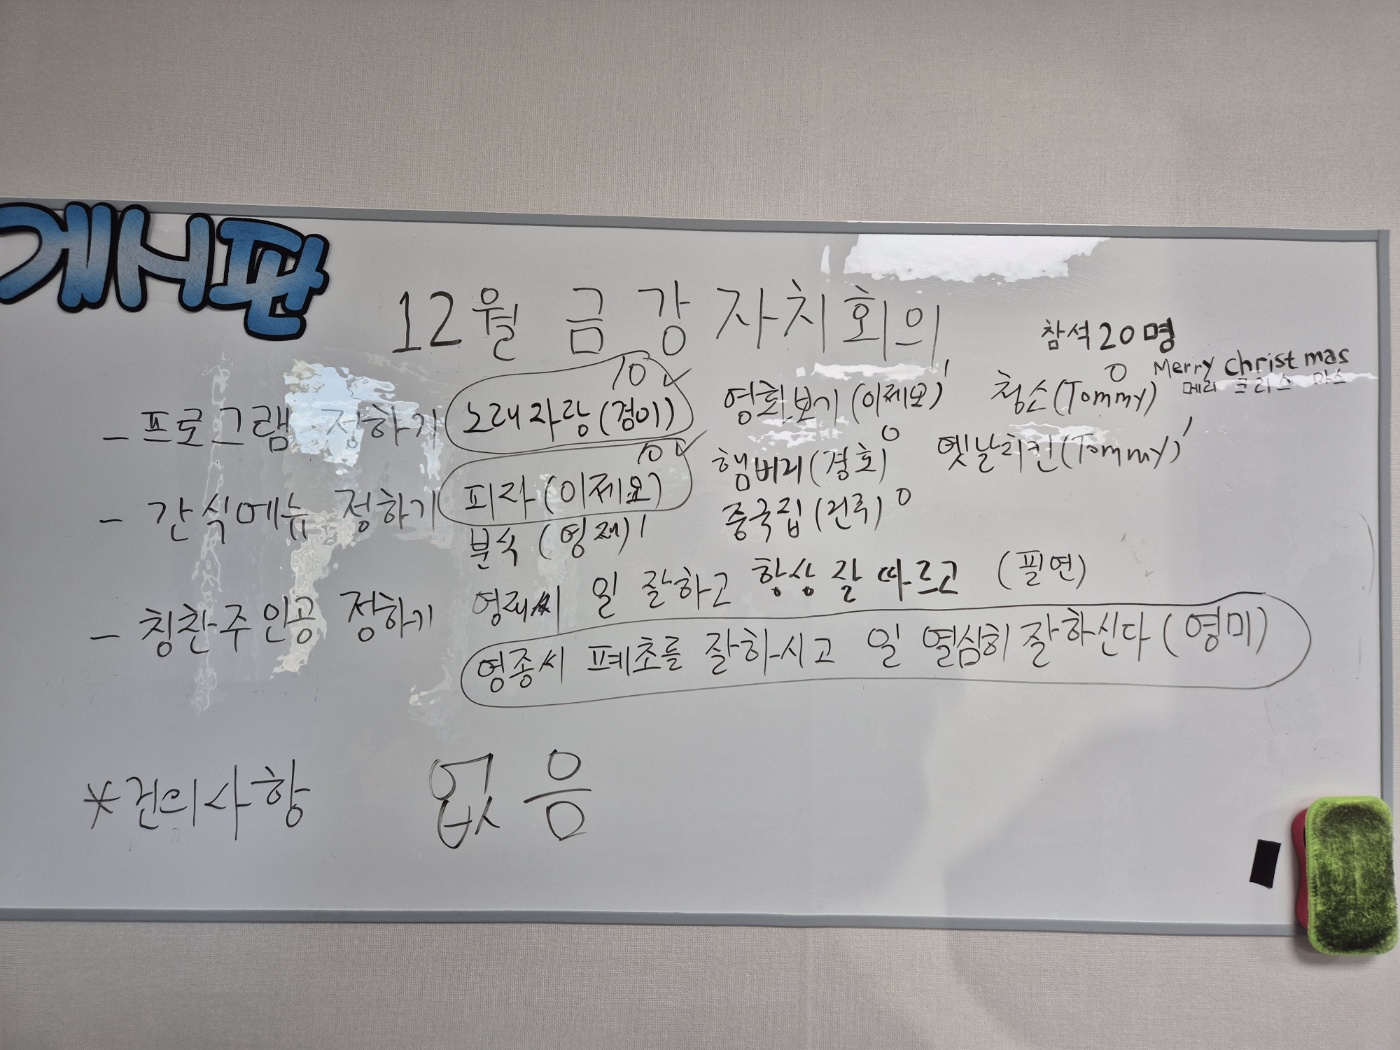 게시판
12월 금강 자치회의
참석 20명
Merry christmas
메리 크리스 마스
- 프로그램 정하기 노래자랑(경이) 10 ✓ 영화보기(이제모) 1 청소(Tommy) 0
- 간식메뉴 정하기 피자(이제모) 10 ✓ 햄버거(경호) 0 옛날치킨(Tommy) 1
분식(영재) 1 중국집(건휘) 0
- 칭찬주인공 정하기 영재씨 일 잘하고 항상 잘 따르고 (필연)
영종씨 표초를 잘하시고 일 열심히 잘하신다(영미)
*건의사항 없음